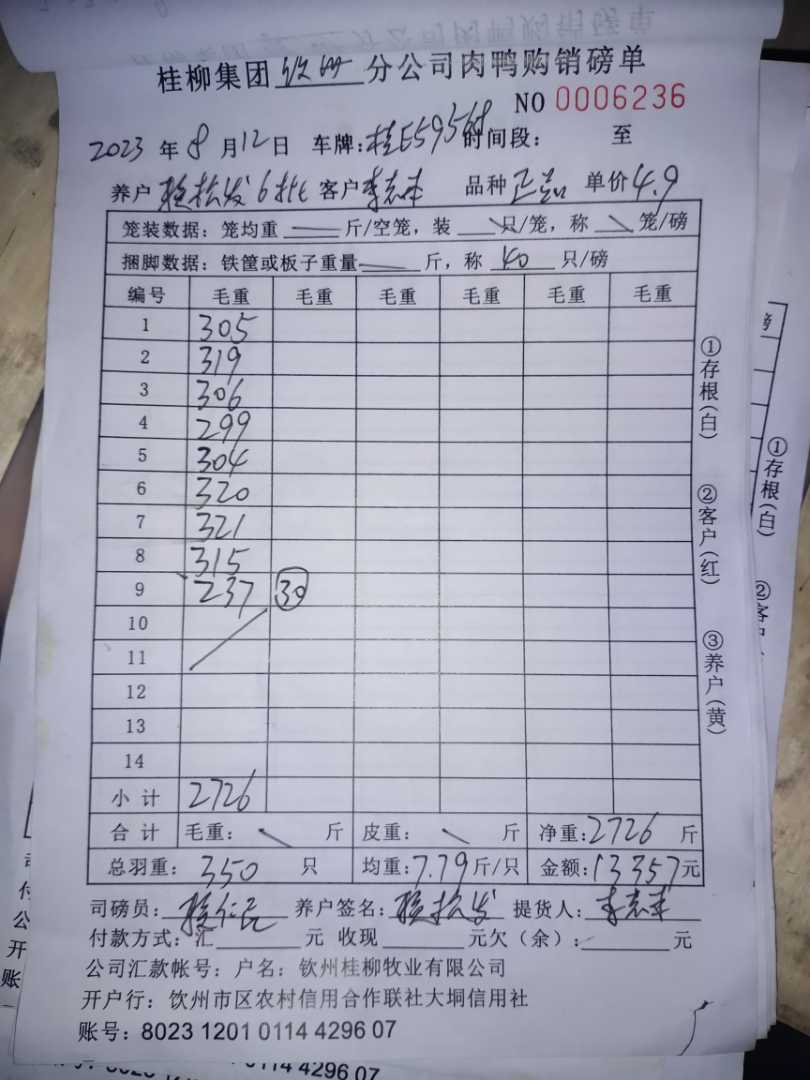 桂柳集团钦州分公司肉鸭购销磅单
NO 0006236
2023年8月12日 车牌:桂E59568 时间段: 至
养户 发6批 客户李志 品种 单价4.9
笼装数据:笼均重 斤/空笼,装 只/笼,称 笼/磅
捆脚数据:铁筐或板子重量 斤,称 40 只/磅
编号 毛重 毛重 毛重 毛重 毛重 毛重
1 305
2 319
3 306
4 299
5 304
6 320
7 321
8 315
9 237 30
10
11
12
13
14
小计 2726
合计 毛重: 斤 皮重: 斤 净重:2726 斤
总羽重:350 只 均重:7.79斤/只 金额:13357元
司磅员: 养户签名: 发 提货人:李志
付款方式:汇 元 收现 元欠(余): 元
公司汇款帐号:户名:钦州桂柳牧业有限公司
开户行:饮州市区农村信用合作联社大垌信用社
账号:8023 1201 0114 4296 07
①存根(白)
②客户(红)
③养户(黄)
①存根(白)
②客户
0114 4296 07